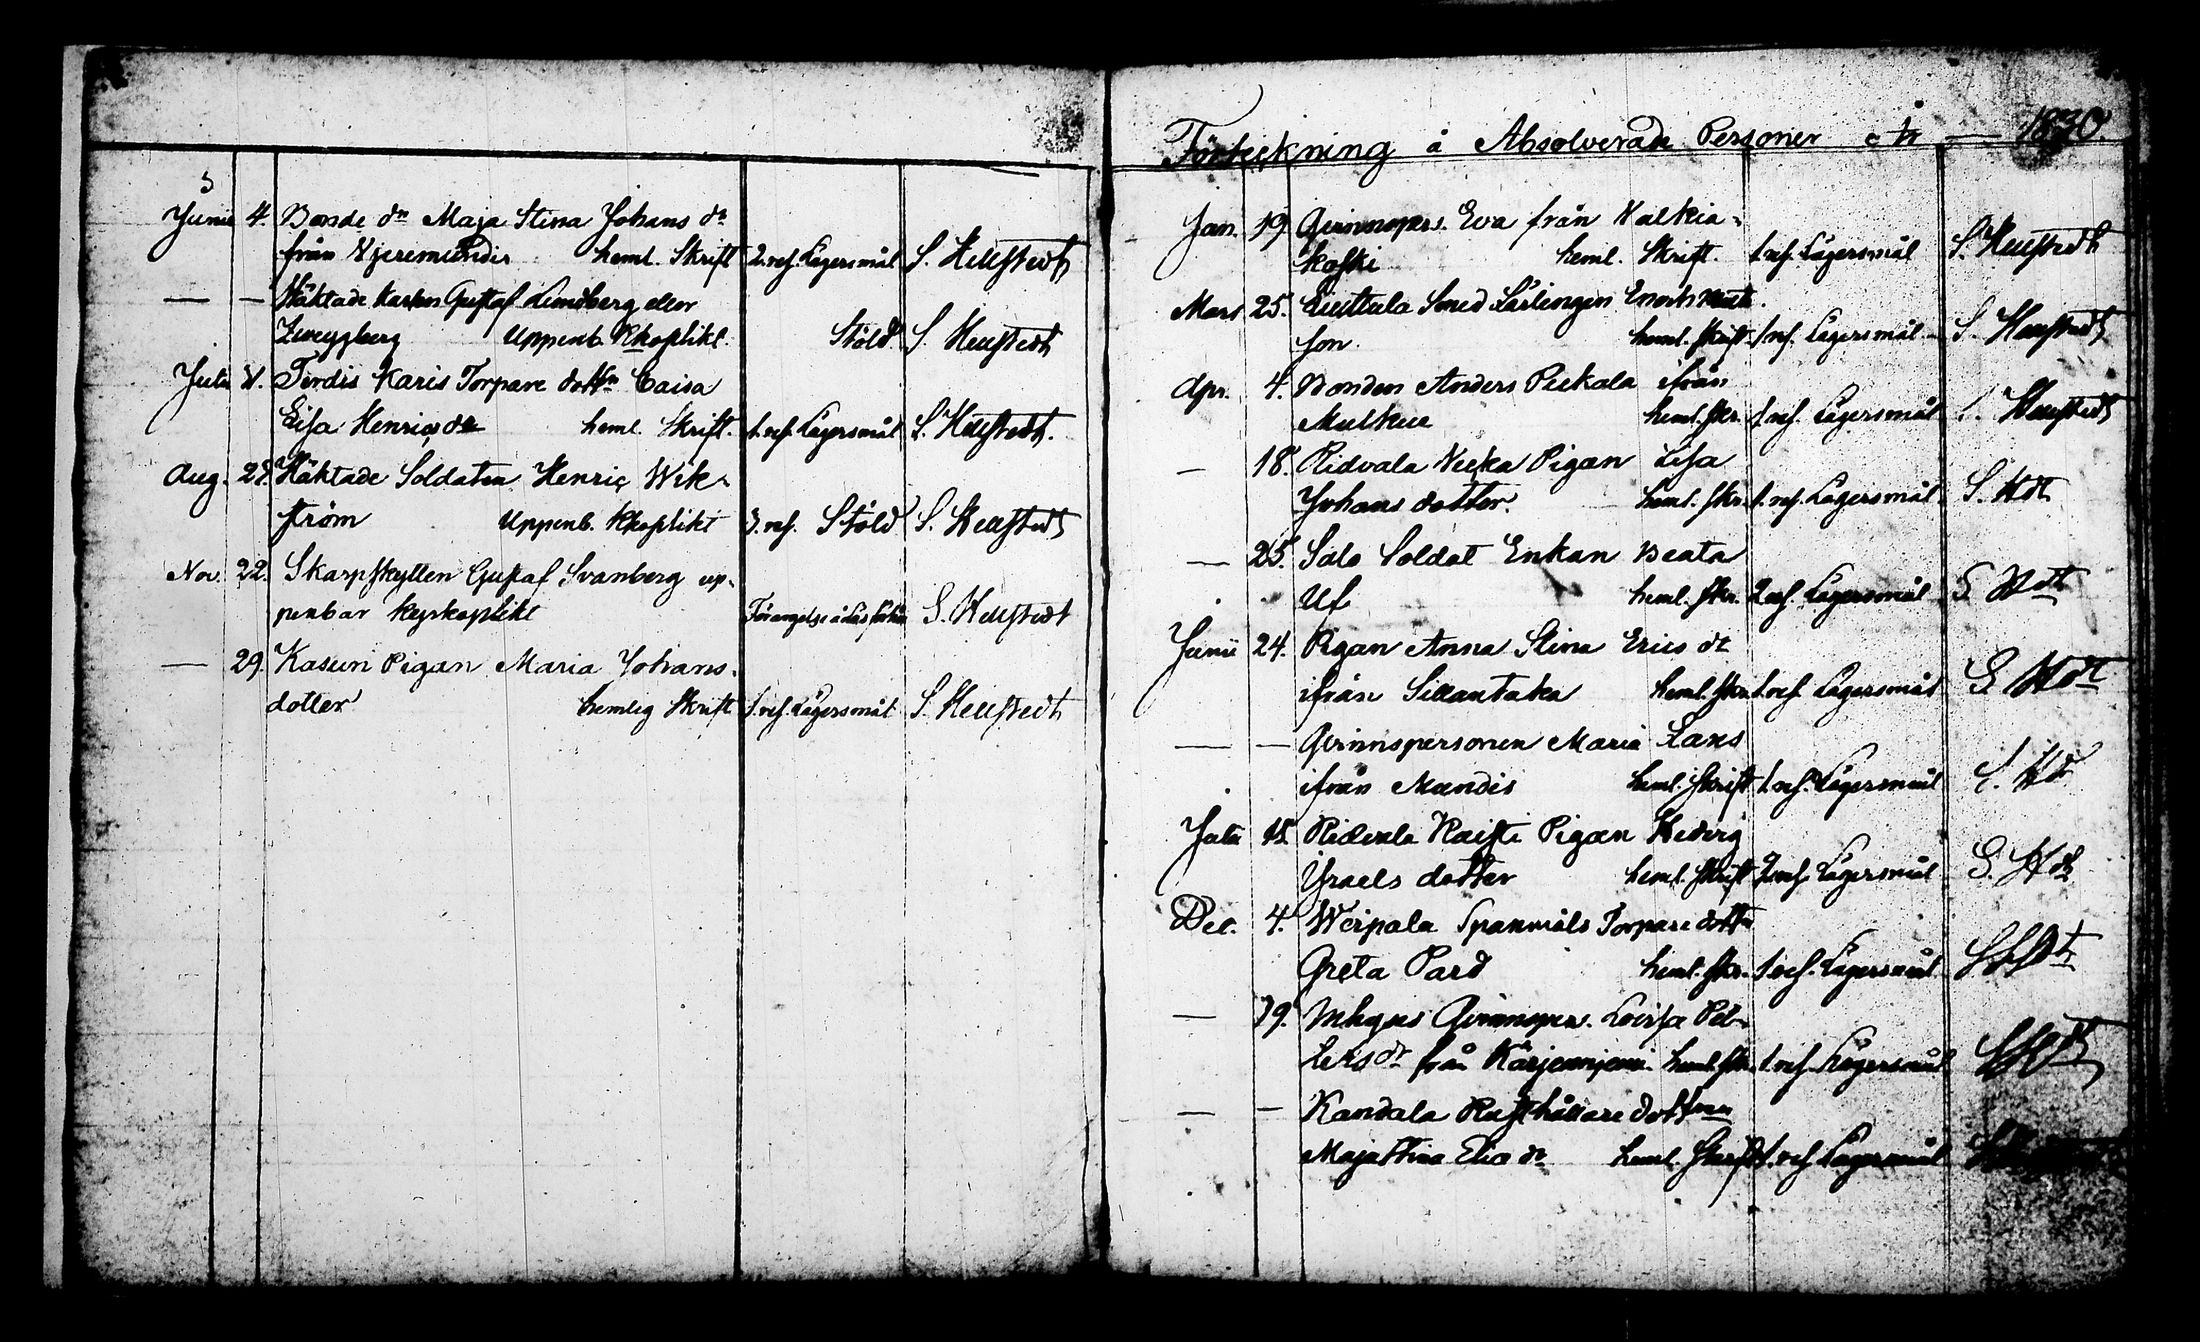 Junii 4. Bonde dn Maja Stina Johans dr
från Hjeremundis heml. Skrift 2. res. Lägersmål S. Hellstedt
— — Häktade Karlen Gustaf Lundberg eller
Zweygberg Uppenb. Kkoplikt. Stöld S. Hellstedt
Julii Ferdis Karis Torpare dottn Caisa
Lisa Henrics dr heml. Skrift. 1. res. Lägersmål S. Hellstedt.
Aug. 28. Häktade Soldaten Henric Wik-
ström Uppenb. Kkoplikt 3. res. Stöld S. Hellstedt
Nov. 22. Skarpskytten Gustaf Svanberg up-
penbar kyrkoplikt S. Hellstedt
— 29. Kasuri Pigan Maria Johans-
dotter hemlig Skrift 1. res. Lägersmål S. Hellstedt
Förteckning å Absolverade Personer — 1830.
Jan. 19. Qvinnspers. Eva från Walkia-
koski heml. Skrift. 1. res. Lägersmål S. Hellstedt
Mars 25. Smed Lärlingen Enoch
son heml. Skrift 1. res. Lägersmål S. Hellstedt
Apr. 4. Bonden Anders Pickala ifrån
heml. skr. 1. res. Lägersmål S. Hellstedt
— 18. Ridvala Pigan Lisa
Johans dotter. heml. skr. 1. res. Lägersmål S. Hdt
— 25. Salo Soldat Enkan Beata
Ulf heml. skr. 2. res. Lägersmål S. Hdt
Junii 24. Pigan Anna Stina Erics dr
ifrån Sillantaka heml. skr. 1. res. Lägersmål S. Hdt
— — Qvinnspersonen Maria Lans
ifrån Mundis heml. skrift 1. res. Lägersmål S. Hdt
Julii 18. Ridvala Raisti Pigan Hedvig
Israels dotter heml. skrift 2. res. Lägersmål S. Hdt
Dec. 4. Weipala Spanmåls Torpare dottn
Greta Pard heml. skr. 1. res. Lägersmål S Hdt
— 19. Inhyses Qvinnspers. Lovisa
från Kärjenniemi heml. skr. 1. res. Lägersmål S Hdt
— — Kandala Rusthållare dottren
Maja Stina Elia dr heml. Skrift 1. res. Lägersmål